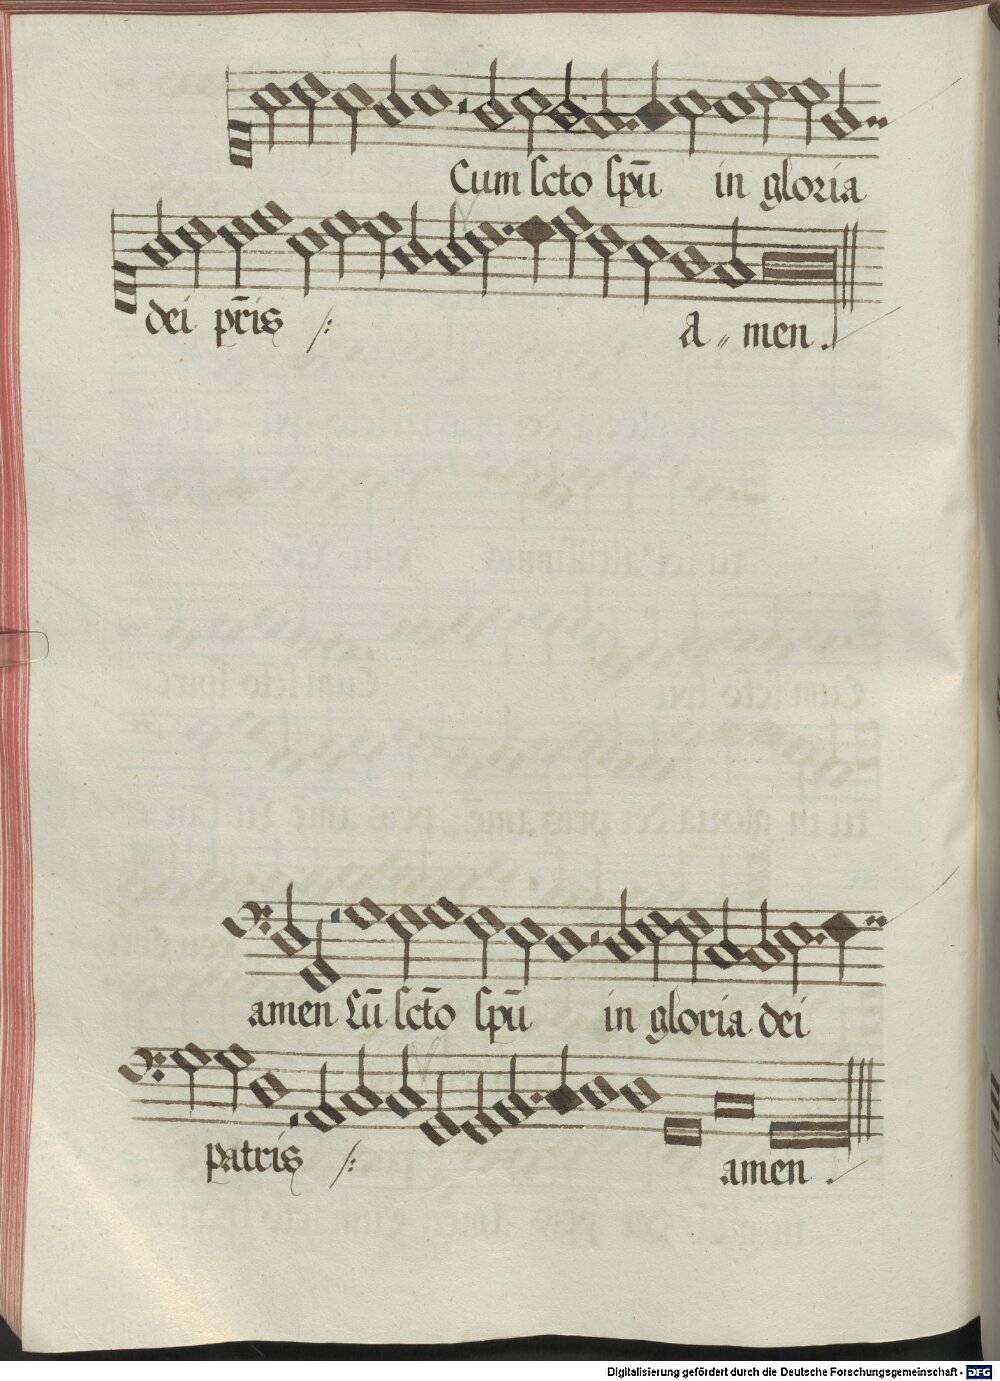 Cum scto spū in gloria
dei pr̄is A men.
amen Cū sct̄o spū in gloria dei
patris amen.
Digitalisierung gefördert durch die Deutsche Forschungsgemeinschaft - DFG